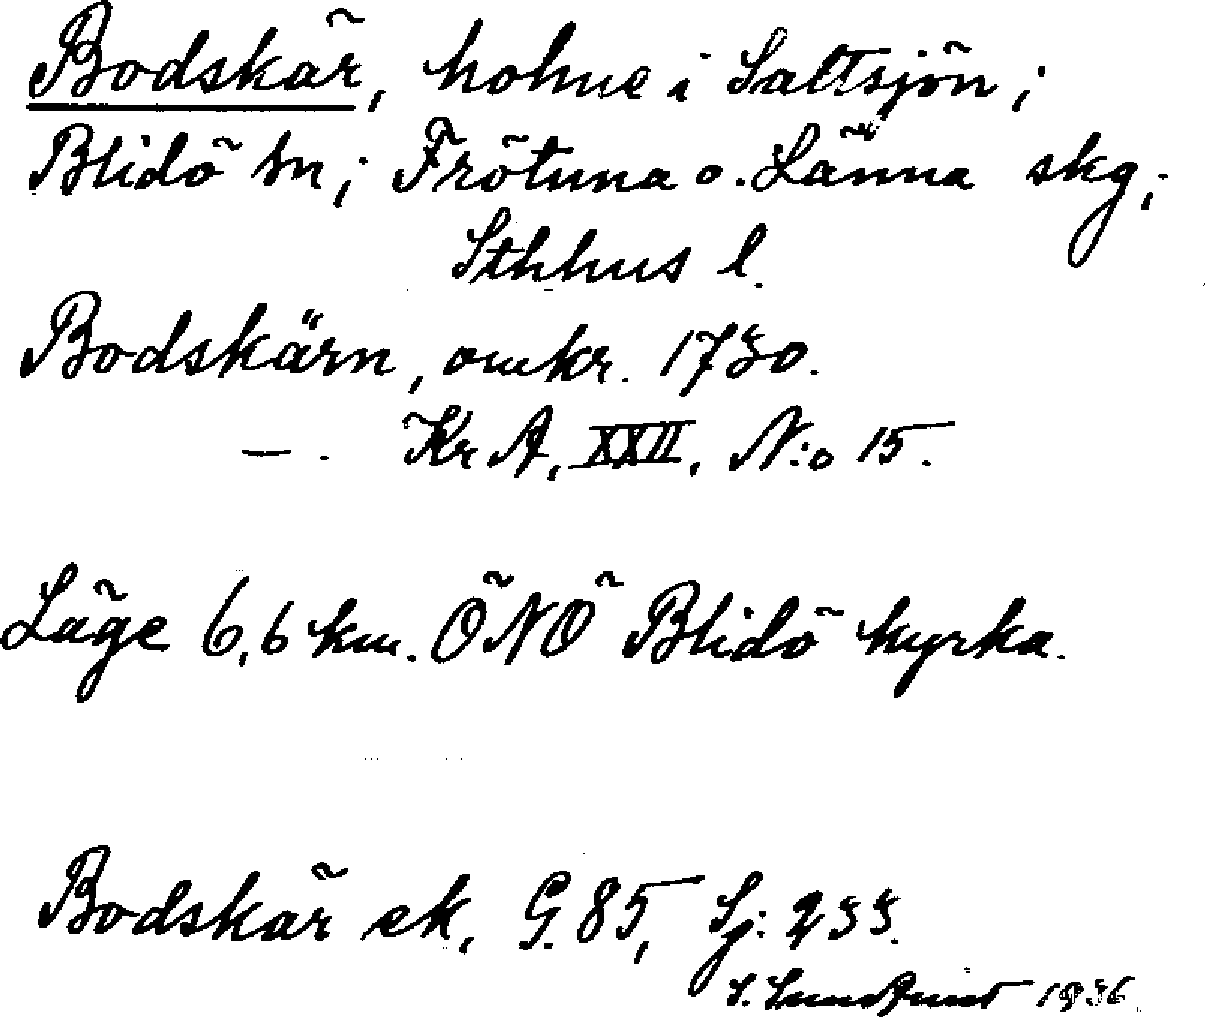 Bodskär, holme i Saltsjön;
Blidö sn; Frötuna o. Länna skg;
Sthlms l.
Bodskärn, omkr. 1730.
— . Kr A, XXII, N:o 15.
Läge 6,6 km. ÖNÖ Blidö kyrka.
Bodskär ek. G. 85, Sj: 233.
S. Lundquist 1936